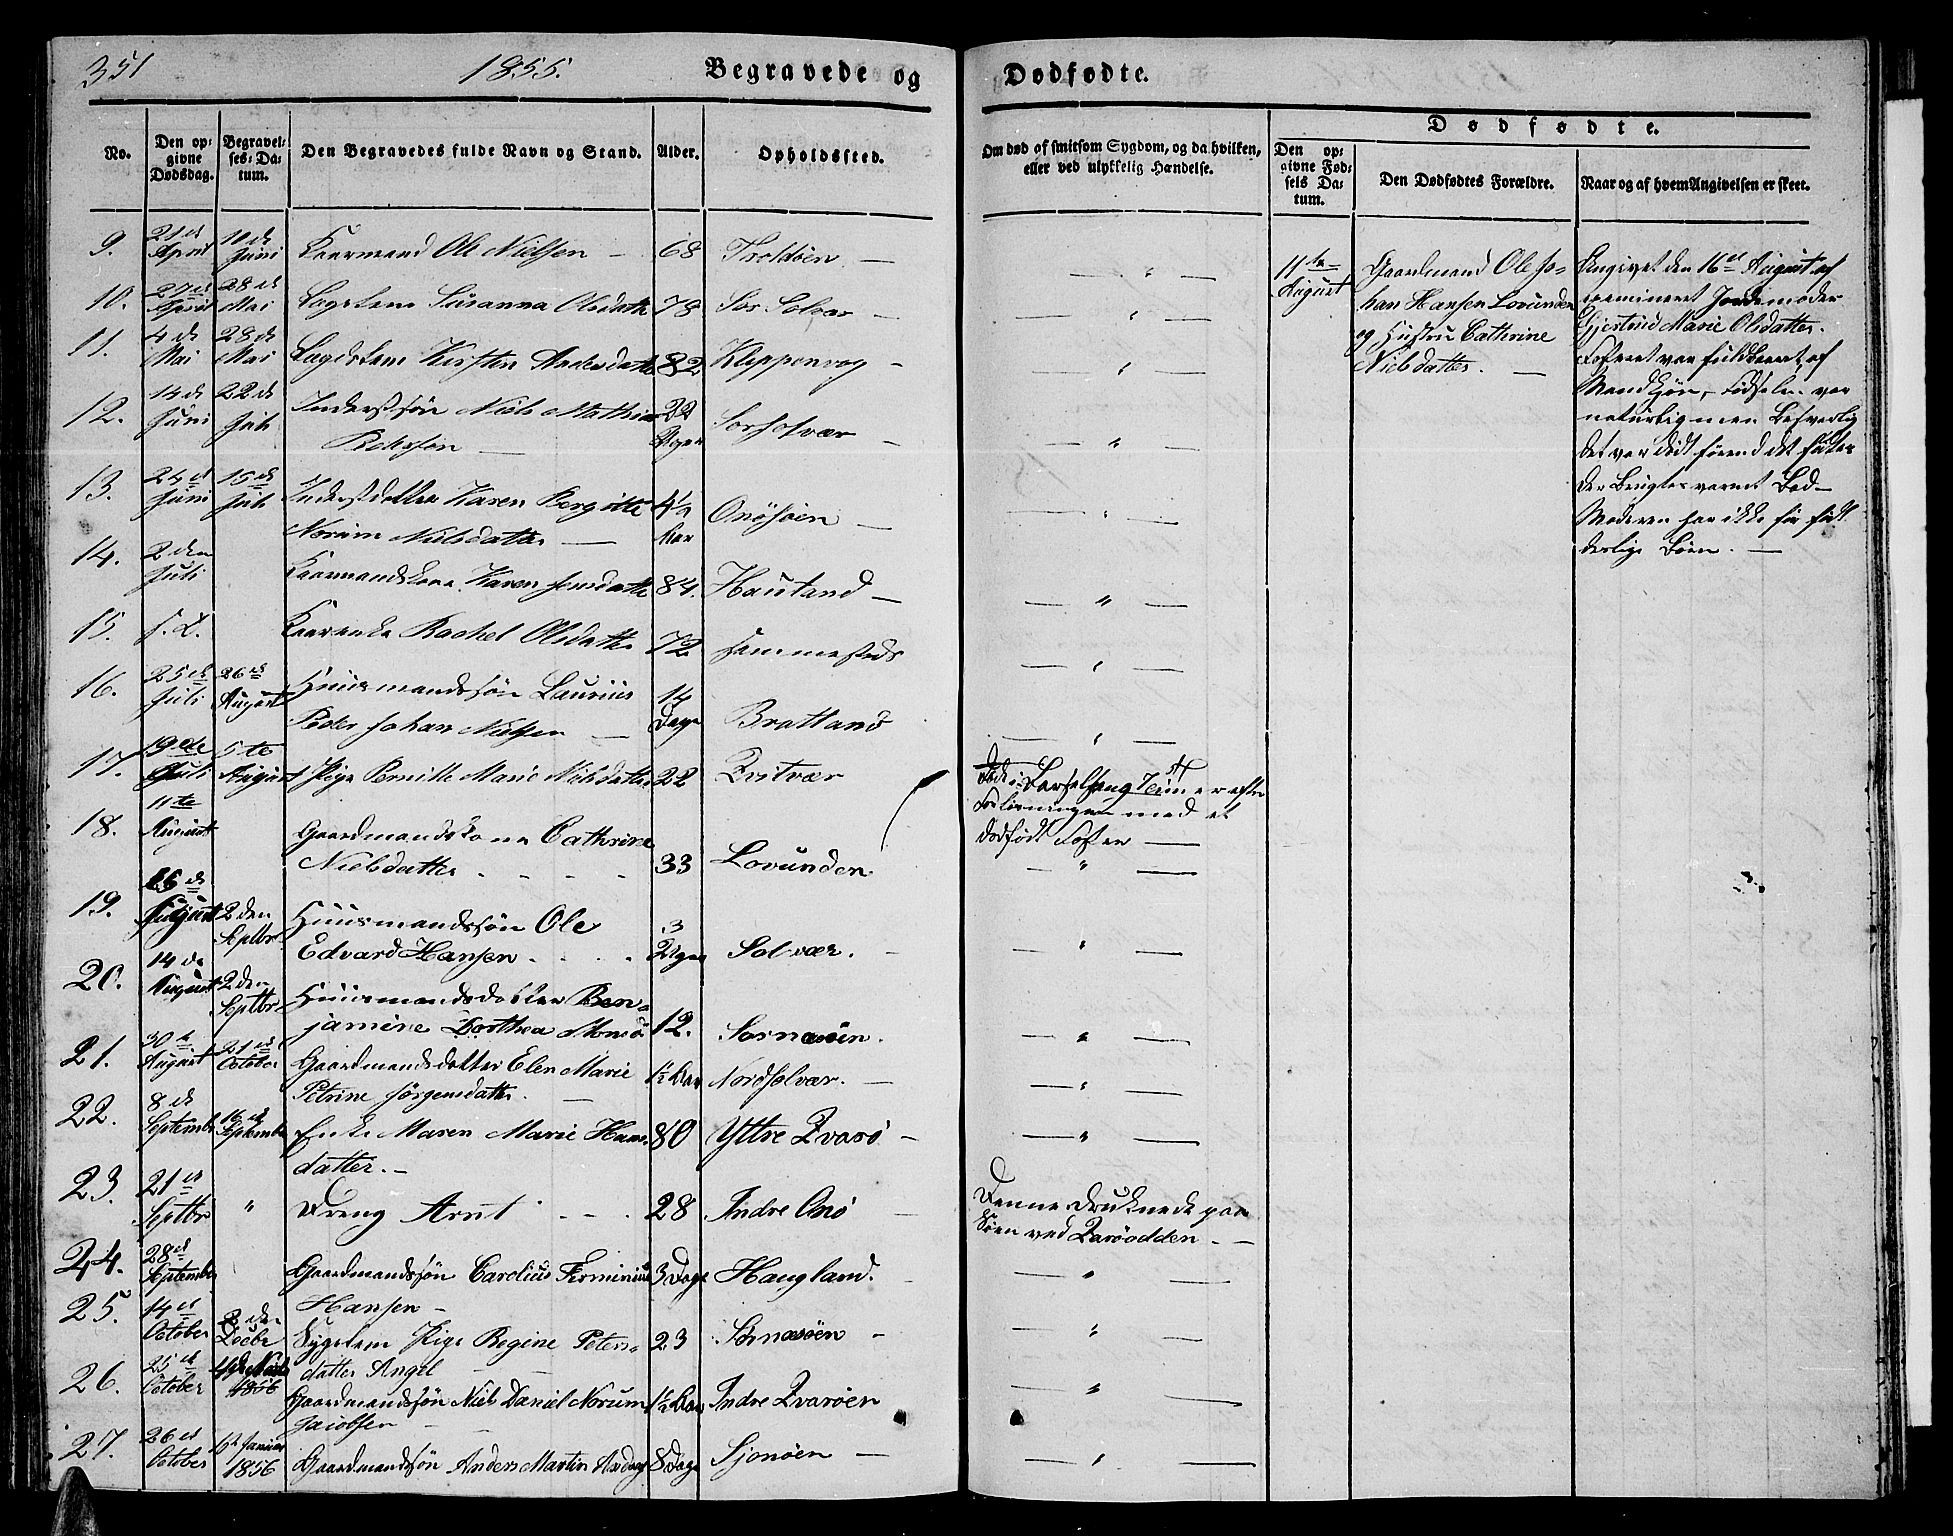 351 1855. Begravede og Dødfødte.
No. Den opgivne Dødsdag. Begravelses-Datum. Den Begravedes fulde Navn og Stand. Alder. Opholdssted.
Om død af smitsom Sygdom, og da hvilken, eller ved ulykkelig Hændelse.
Dødfødte.
Den opgivne Fødsels Datum. Den Dødfødtes Forældre. Naar og af hvem Angivelsen er skeet.
9. 21de April 10de Juni Kaarmand Ole Nielsen 68
10. 27de April 28de Mai Susanna Olsdatter 78 Sør Solvær
11. 4de Mai 28de Mai Lægdslem Kirsten Andersdatter 82 Kleppenvog
12. 14de Juni 22de Juli Inderstsøn Niels Mathias
Pedersen 22 Uger Sørsolvær
13. 24de Juni 15de Juli Inderstdatter Karen Bergitte
Norum Nielsdatter 4½ Aar Onøsøen
14. 2den Juli Kaarmandskone Karen Jensdatter 84. Hautand
15. s. d. Kaarenke Rachel Olsdatter 72 sammesteds
16. 25de Juli 26de August Huusmandssøn Laurius
Peder Johan Nielsen 14 Dage Bratland
17. 19de Juli 5te August Pige Pernille Marie Nielsdatter 22 Qvitvær
18. 11te August Gaardmandskone Cathrine
Nielsdatter 33 Lovunden
Døde i Barselseng 7 Timer efter
Forløsningen med et
dødfødt Foster
19. August 2den Septbr Huusmandssøn Ole
Edvard Hansen 3 Uger Solvær.
20. 14de August 2den Septbr Huusmandsdatter Ben-
jamine Dorthea 12. Sørnæsøen.
21. 30te August 21de October Gaardmandsdatter Elen Marie
Petrine Jørgensdatter. 1½ Aar Nordsolvær.
22. 8de September 16de September Enke Maren Marie Hans-
datter. 80 Yttre Qvarø
23. 21de Septbr " Dreng Arnt 28 Indre Onø
Denne druknede paa
Søen ved Qvarøodden.
24. 28de September Gaardmandssøn Carolius Ferminius
Hansen 3 Dage Haugland.
25. 14de October 2den Decbr Sygelem Pige Regine Peters-
datter Angel 23 Sørnæsøen
26. 25de October 1856 Gaardmandssøn Niels Daniel Norum
Jacobsen 1½ Aar Indre Qvarøen
27. 26de October 6te Januar 1856 Gaardmandssøn Anders Martin 8 Dage Sjonøen
11te August
Gaardmand Ole Jo-
han Hansen Lovunden
og Hustru Cathrine
Nielsdatter.
Angivet den 16de August af
examineret Jordemoder
Gjertrud Marie Olsdatter.
Fosteret var fuldbaaret af
Mandkjøn, Fødselen var
naturlig men besværlig
det var dødt førend det fødtes
der brugtes varmt Bad
Moderen har ikke før født
Børn.